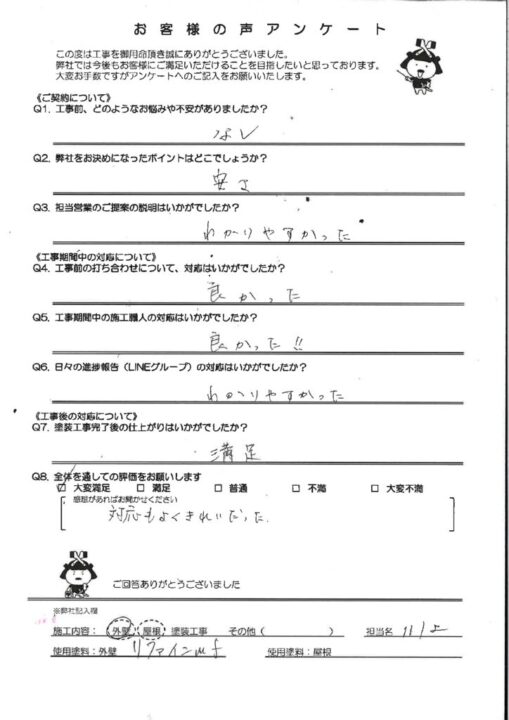 お客様の声アンケート
この度は工事を御用命頂き誠にありがとうございました。
弊社では今後もお客様にご満足いただけることを目指したいと思っております。
大変お手数ですがアンケートへのご記入をお願いいたします。
《ご契約について》
Q1. 工事前、どのようなお悩みや不安がありましたか?
なし
Q2. 弊社をお決めになったポイントはどこでしょうか?
安さ
Q3. 担当営業のご提案の説明はいかがでしたか?
わかりやすかった
《工事期間中の対応について》
Q4. 工事前の打ち合わせについて、対応はいかがでしたか?
良かった
Q5. 工事期間中の施工職人の対応はいかがでしたか?
良かった!!
Q6. 日々の進捗報告(LINEグループ)の対応はいかがでしたか?
わかりやすかった
《工事後の対応について》
Q7. 塗装工事完了後の仕上がりはいかがでしたか?
満足
Q8. 全体を通しての評価をお願いします
☑ 大変満足 □ 満足 □ 普通 □ 不満 □ 大変不満
感想があればお聞かせください
対応もよくきれいだった.
ご回答ありがとうございました
※弊社記入欄
施工内容: 外壁 屋根 塗装工事 その他( ) 担当名
使用塗料:外壁 リファインMf 使用塗料:屋根